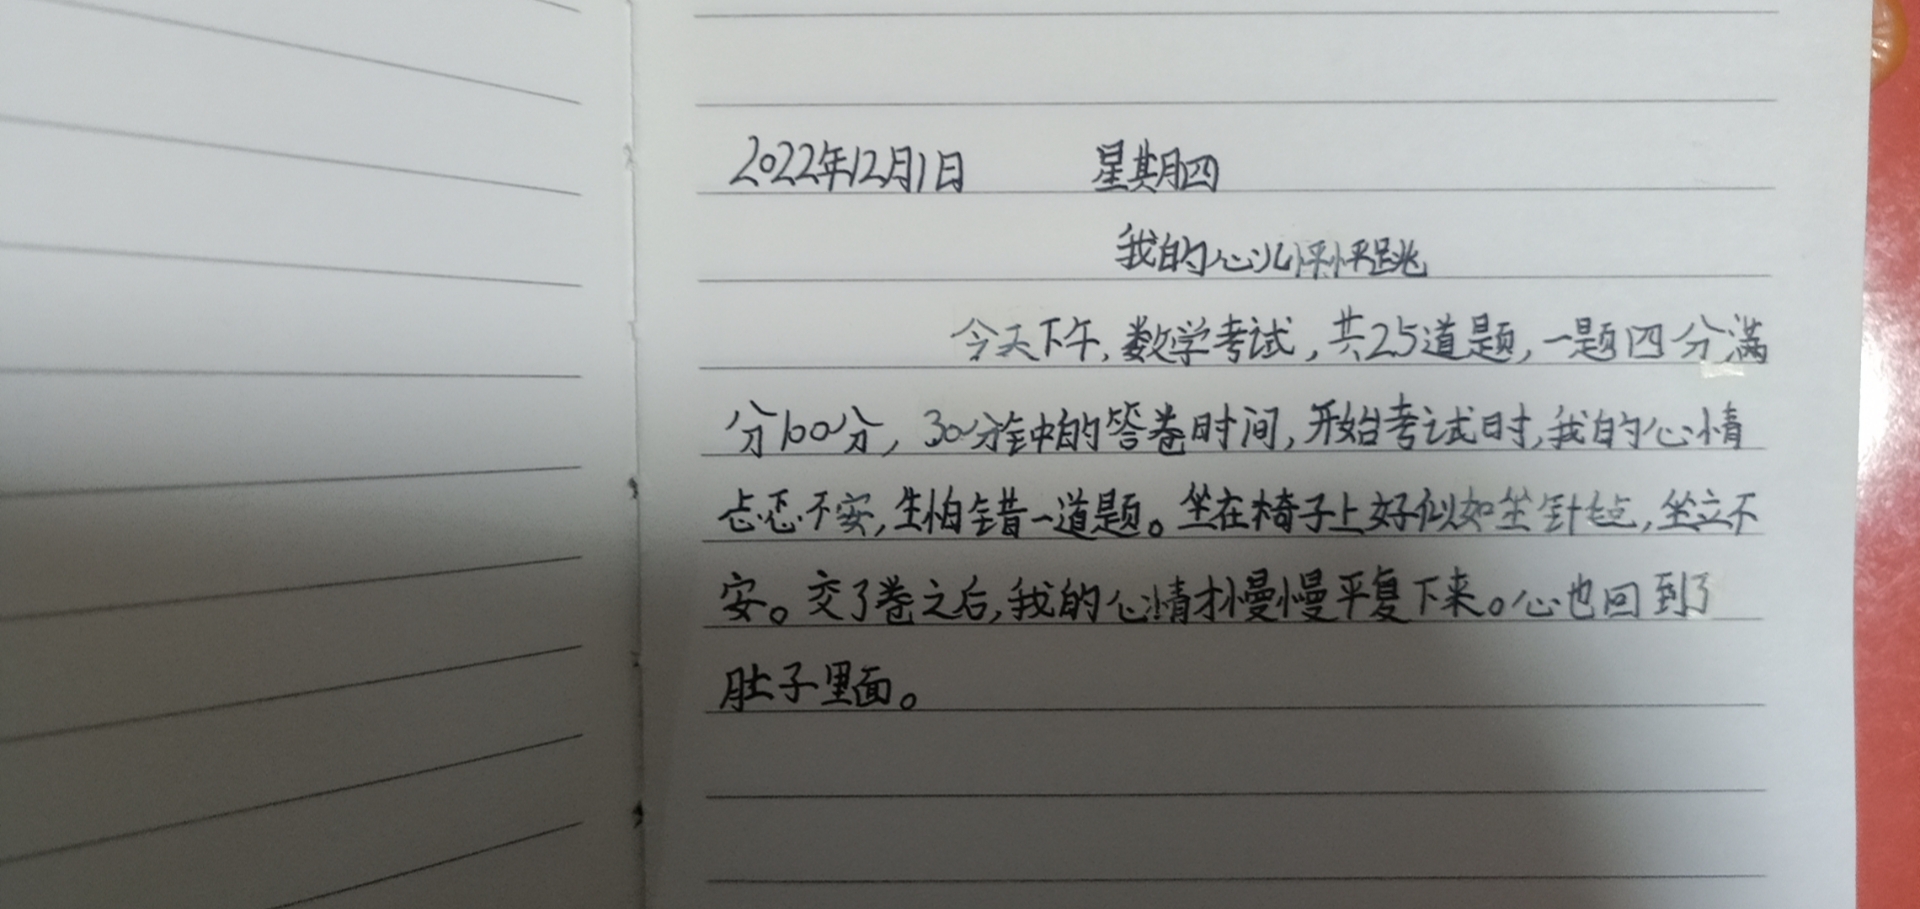 2022年12月1日 星期四
我的心儿怦怦跳
今天下午,数学考试,共25道题,一题四分满
分100分,30分钟的答卷时间,开始考试时,我的心情
忐忑不安,生怕错一道题。坐在椅子上好似如坐针毡,坐立不
安。交了卷之后,我的心情才慢慢平复下来。心也回到了
肚子里面。